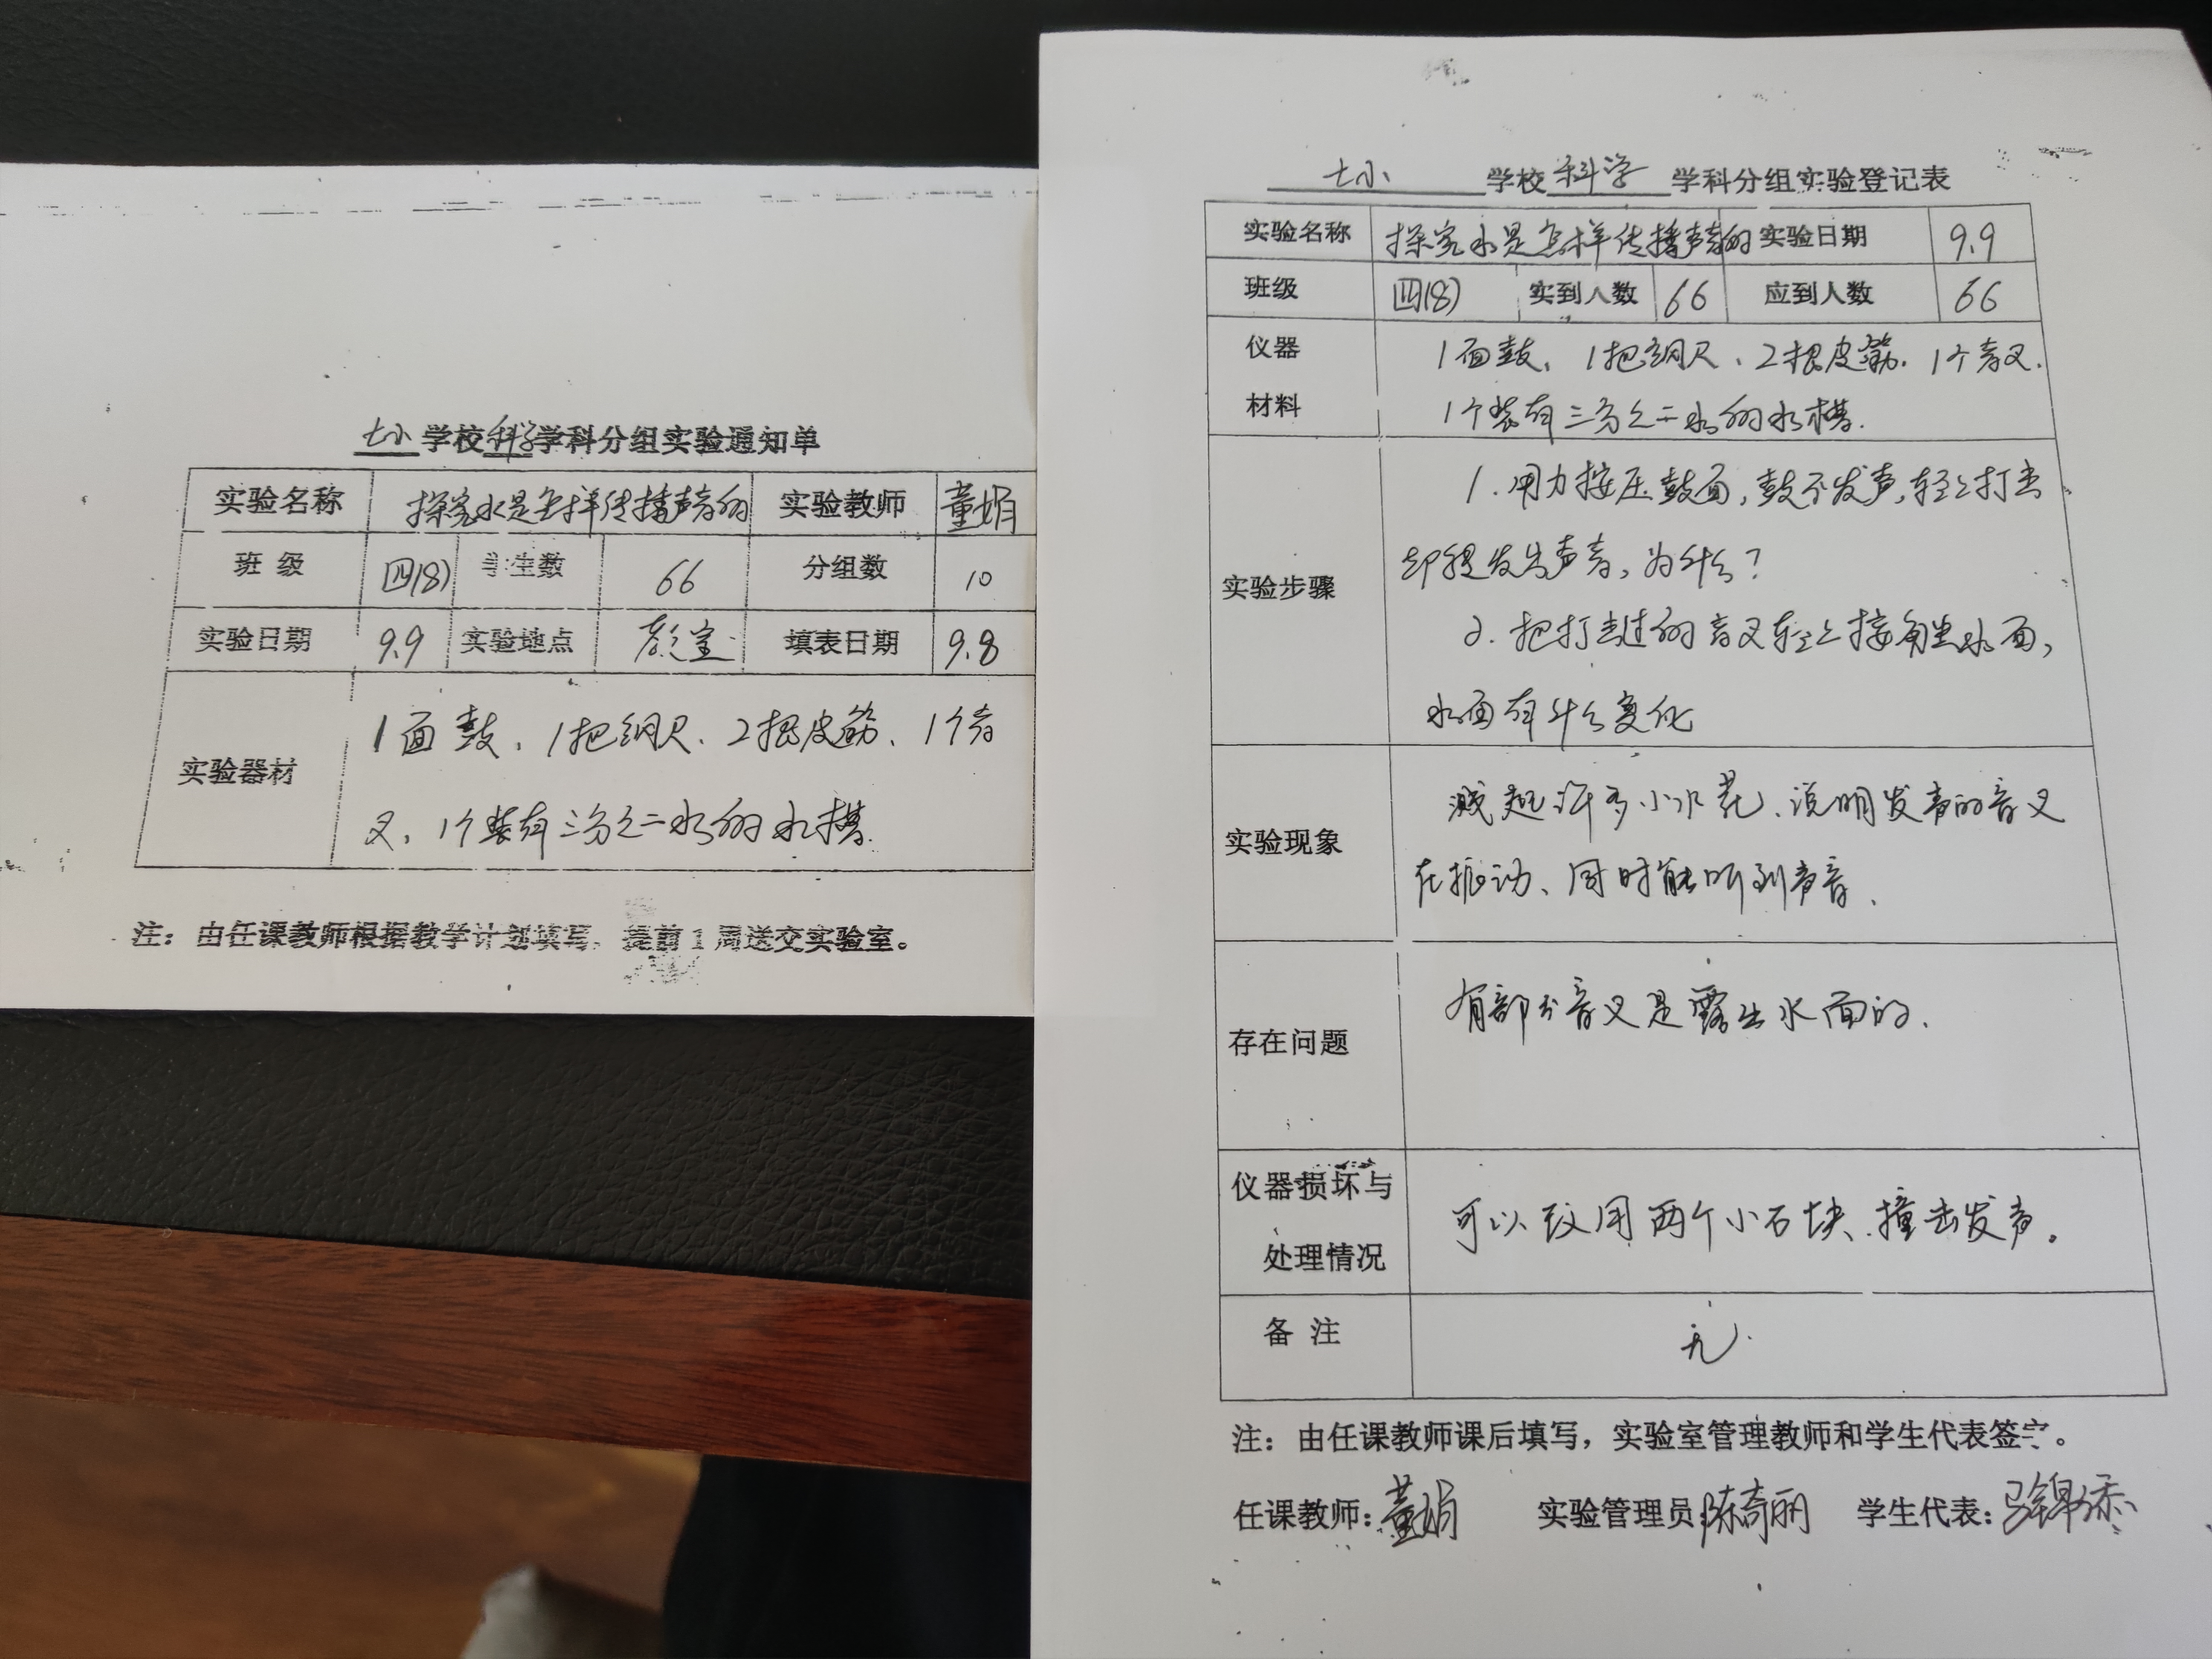 七小学校科学学科分组实验通知单
实验名称 探究水是怎样传播声音的 实验教师 董娟
班级 四(8) 学生数 66 分组数 10
实验日期 9.9 实验地点 填表日期 9.8
实验器材 1面鼓、1把钢尺、2根皮筋、1个音
叉、1个装有三分之二水的水槽.
注：由任课教师根据教学计划填写，提前1周送交实验室。
七小 学校 科学 学科分组实验登记表
实验名称 探究水是怎样传播声音的 实验日期 9.9
班级 四(8) 实到人数 66 应到人数 66
仪器 1面鼓、1把钢尺、2根皮筋、1个音叉.
材料 1个装有三分之二水的水槽.
1.用力按压鼓面,鼓不发声,轻轻打击
却能发出声音,为什么?
实验步骤
2.把打击过的音叉轻轻接触水面,
水面有什么变化
溅起许多小水花、说明发声的音叉
实验现象
在振动、同时能听到声音.
有部分音叉是露出水面的.
存在问题
仪器损坏与 可以改用两个小石块.撞击发声。
处理情况
备注 无.
注：由任课教师课后填写，实验室管理教师和学生代表签字。
任课教师:董娟 实验管理员:陈奇丽 学生代表: